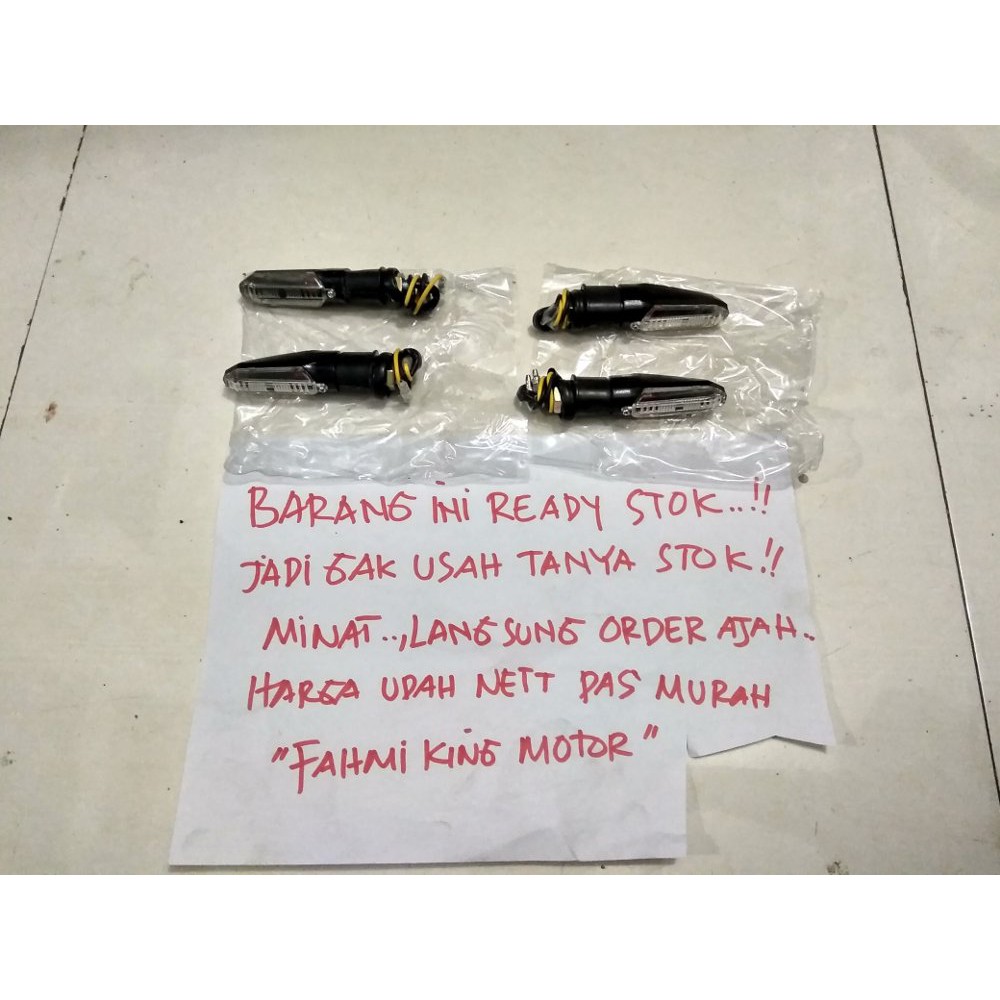 BARANG INI READY STOK..!!
JADI GAK USAH TANYA STOK!!
MINAT..,LANGSUNG ORDER AJAH..
HARGA UDAH NETT PAS MURAH
"FAHMI KING MOTOR"